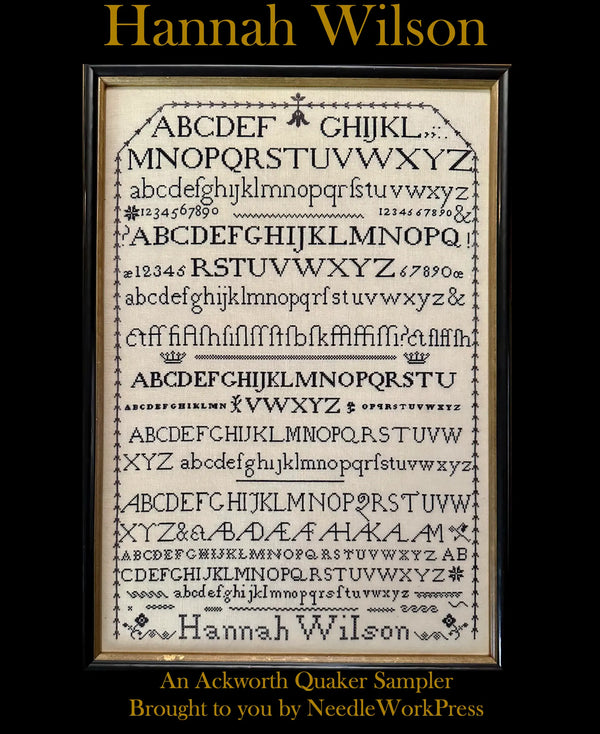 Hannah Wilson
ABCDEF GHIJKL,;:.
MNOPQRSTUVWXYZ
abcdefghıjklmnopqrſstuvwxyz
1234567890 1234567890 &
?ABCDEFGHIJKLMNOPQ!
æ12345 RSTUVWXYZ 67890œ
abcdefghijklmnopqrſstuvwxyz&
ABCDEFGHIJKLMNOPQRSTU
ABCDEFGHIKLMN VWXYZ OPQRSTUVWXYZ
ABCDEFGHIJKLMNOPQRSTUVW
XYZ abcdefghıjklmnopqrſstuvwxyz
ABCDEFGHIJKLMNOPQRSTUVW
XYZ&
ABCDEFGHIJKLMNOPQRSTUVWXYZ AB
CDEFGHIJKLMNOPQRSTUVWXYZ
abcdefghijklmnopqrſstuvwxyz
Hannah Wilson
An Ackworth Quaker Sampler
Brought to you by NeedleWorkPress